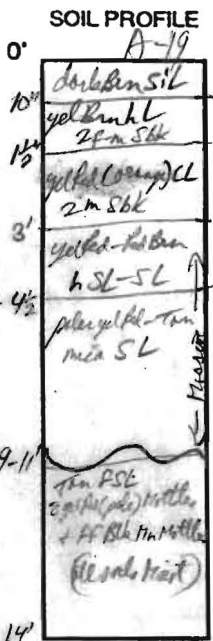 SOIL PROFILE
A-19
0'
dark Brn SiL
10"
yel Brn hL
2f-m Sbk
1½
yel Red (orange) CL
2m Sbk
3'
yel Red - Red Brn
h SL-SL
4½
paler yel Rd - Tan
mica SL
← Massive →
9-11'
Tan FSL
yel Rd (pale) Mottles
+ ff Blk Mn Mottles
Moist)
14'